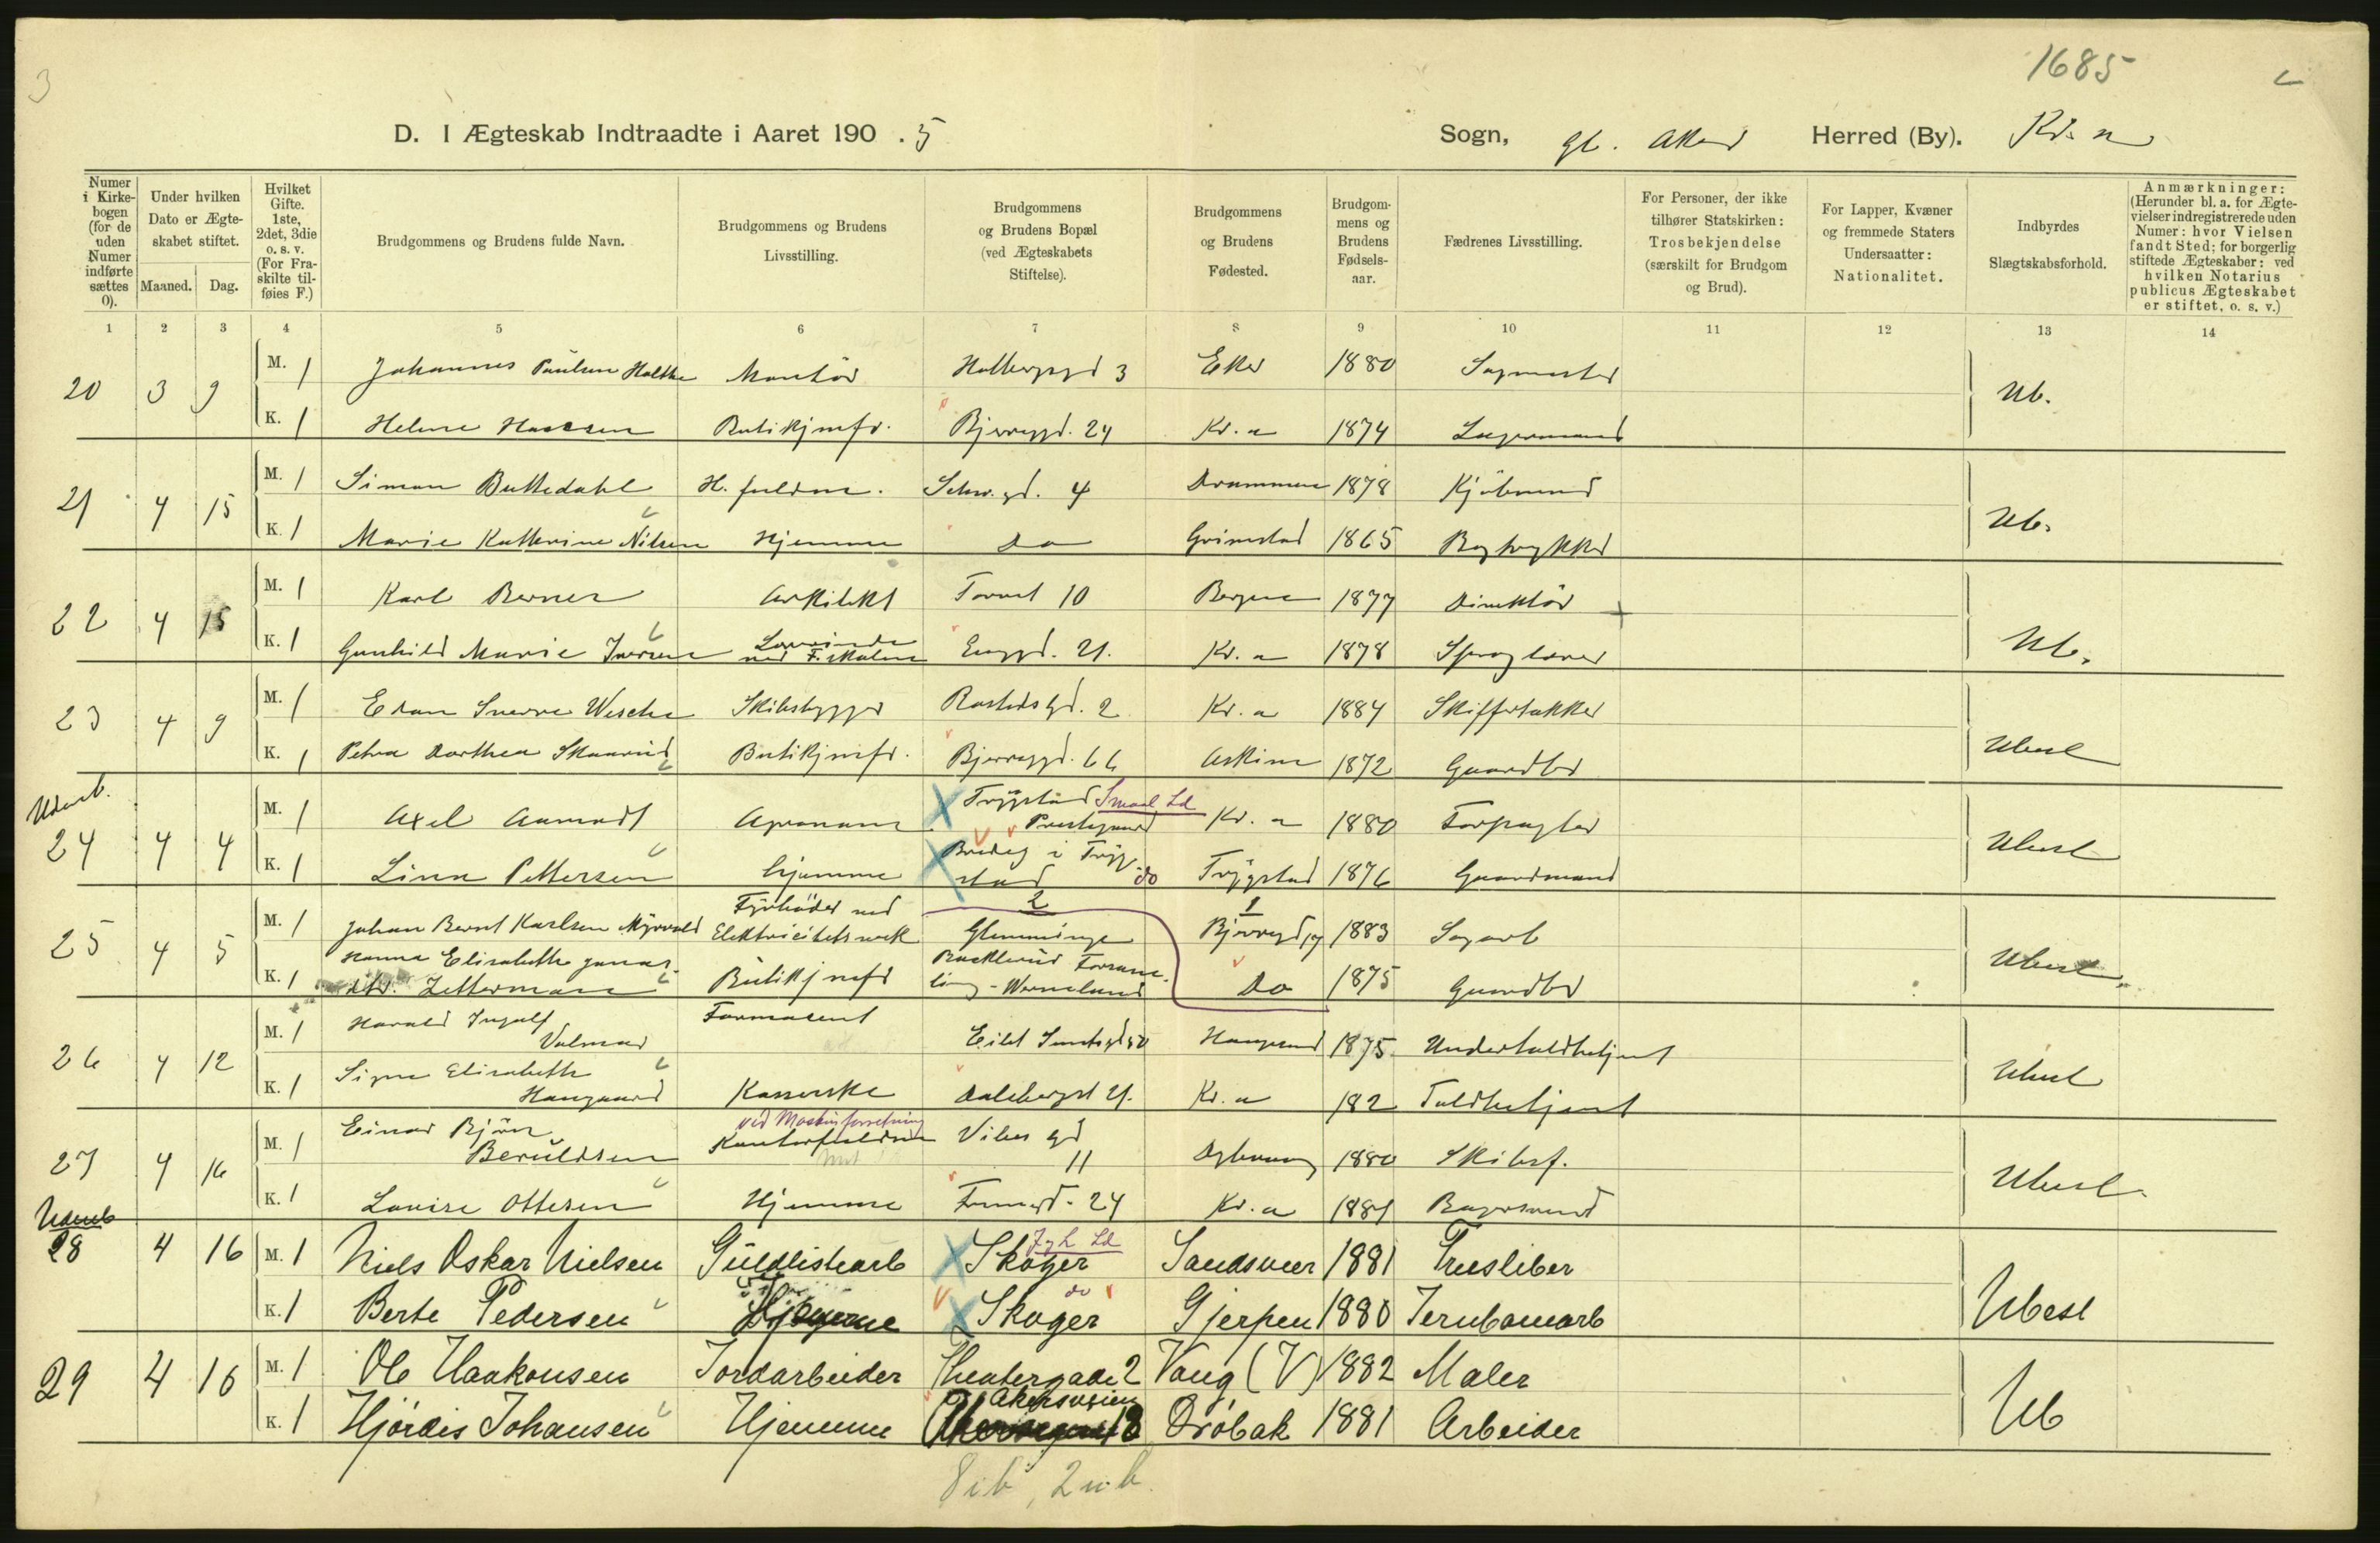 3
1685
D. I Ægteskab Indtraadte i Aaret 190 . 5
Sogn, gl. Aker Herred (By). Kr.a
Numer i Kirkebogen (for de uden Numer indførte sættes 0).
Under hvilken Dato er Ægteskabet stiftet.
Maaned. Dag.
Hvilket Gifte. 1ste, 2det, 3die o. s. v. (For Fraskilte tilføies F.)
Brudgommens og Brudens fulde Navn.
Brudgommens og Brudens Livsstilling.
Brudgommens og Brudens Bopæl (ved Ægteskabets Stiftelse).
Brudgommens og Brudens Fødested.
Brudgommens og Brudens Fødselsaar.
Fædrenes Livsstilling.
For Personer, der ikke tilhører Statskirken: Trosbekjendelse (særskilt for Brudgom og Brud).
For Lapper, Kvæner og fremmede Staters Undersaatter: Nationalitet.
Indbyrdes Slægtskabsforhold.
Anmærkninger: (Herunder bl. a. for Ægtevielser indregistrerede uden Numer: hvor Vielsen fandt Sted; for borgerlig stiftede Ægteskaber: ved hvilken Notarius publicus Ægteskabet er stiftet, o. s. v.)
1 2 3 4 5 6 7 8 9 10 11 12 13 14
20 3 9 M. 1 Johannes Paulsen Holthe Montör 3 Eker 1880 Sagmester Ub.
K. 1 Helene Hansen Butikjmfr. Bjerregd. 24 Kr.a 1874 Lagermand
21 4 15 M. 1 Simon Buttedahl H. fuldm. Schw.gd. 4 Drammen 1878 Kjöbmand Ub.
K. 1 Marie Kathrine Nilsen Hjemme Do Grimstad 1865 Bogtrykker
22 4 15 M. 1 Karl Berner Arkitekt Torvet 10 Bergen 1877 Direktör Ub.
K. 1 Gunhild Marie Iversen Lærerinde ved F.skolen Enggd. 21. Kr.a 1878 Sproglærer
23 4 9 M. 1 Sverre Wesche Skibsbygger gd. 2 Kr.a 1884 Skiffertækker Ubesl
K. 1 Petra Dorthea Skaarud Butikjmfr. Bjerregd. 66 Askim 1872 Gaardbr
Udenb.
24 4 4 M. 1 Axel Aamodt Agronom Trygstad Smaal Ld Prestegaard Kr.a 1880 Forpagter Ubesl
K. 1 Lina Pettersen hjemme i Trygstad do Trygstad 1876 Gaardmand
25 4 5 M. 1 Johan Bernt Karlsen Myrvold Fyrböder ved Elektricitetsverk 2 Glemminge 1 Bjerregd 17 1883 Sagarb Ubesl
K. 1 Hanna Elisabeth Jonasdtr. Zetterman Butikjmfr Forsamling - Wermeland Do 1875 Gaardbr
26 4 12 M. 1 Harald Ingolf Valmar Farmaceut Eilet Sundtsgd 50 Haugesund 1875 Undertoldbetjent Ubesl
K. 1 Signe Elisabeth Haugaard Kasserske Dalsbergst 21. Kr.a 182 Toldbetjent
27 4 16 M. 1 Einar Björn Beruldsen ved Maskinforretning Kontorfuldm Vibes gd 11 1880 Skibsf. Ubesl.
K. 1 Lovise Ottesen Hjemme 24 Kr.a 1881 Bagersvend
Udenb
28 4 16 M. 1 Niels Oskar Nielsen Guldlistearb Skoger Jgh Ld Sandsvær 1881 Træsliber Ubesl
K. 1 Berte Pedersen Skoger do Gjerpen 1880 Jernbanearb
29 4 16 M. 1 Ole Haakonsen Jordarbeider Theatergade 2 Vang (V) 1882 Maler Ub
K. 1 Hjördis Johansen Hjemme Akersveien 18 Dröbak 1881 Arbeider
8 ib, 2 ub.